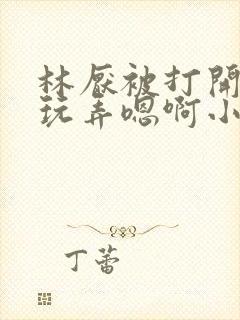 林厭被打開
玩弄嗯啊小
丁蕾